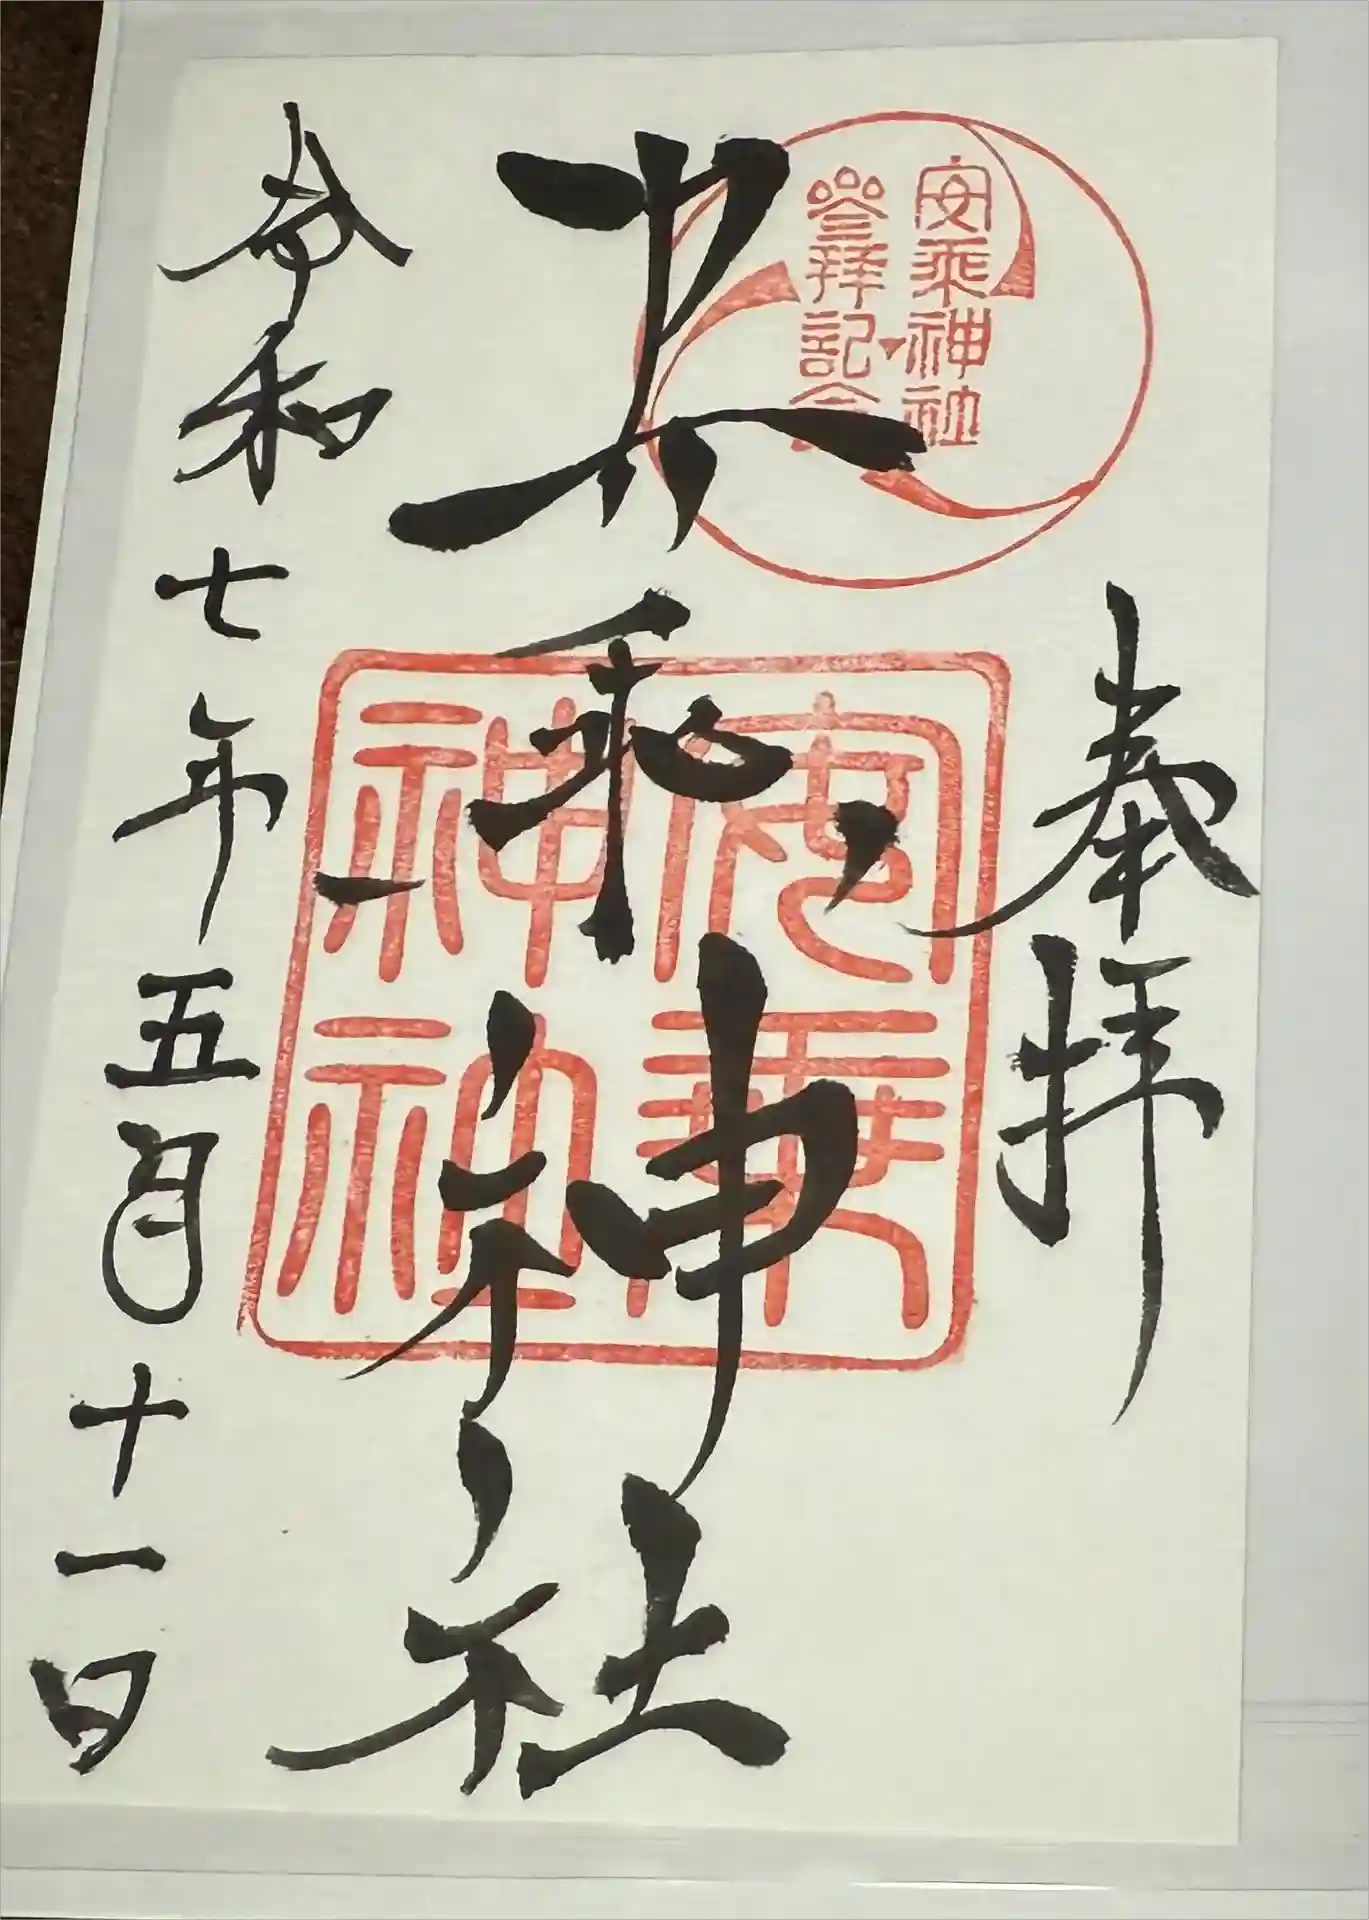 奉拝
安乗神社
参拝記念
安乗神社
安乗
神社
令和七年五月十一日